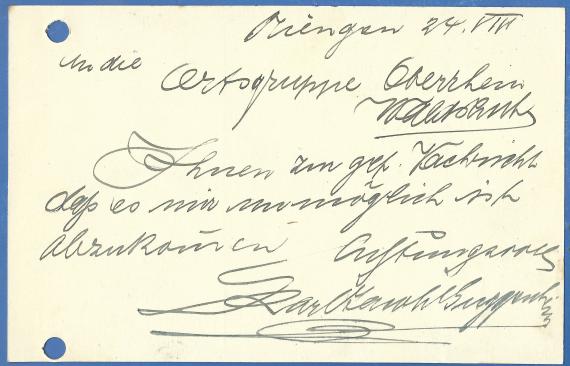 24. VIII
An die
Ortsgruppe Oberrhein
Waldshut
Ihnen zur gef. Nachricht
daß es mir unmöglich ist
abzukommen Achtungsvoll
Karl